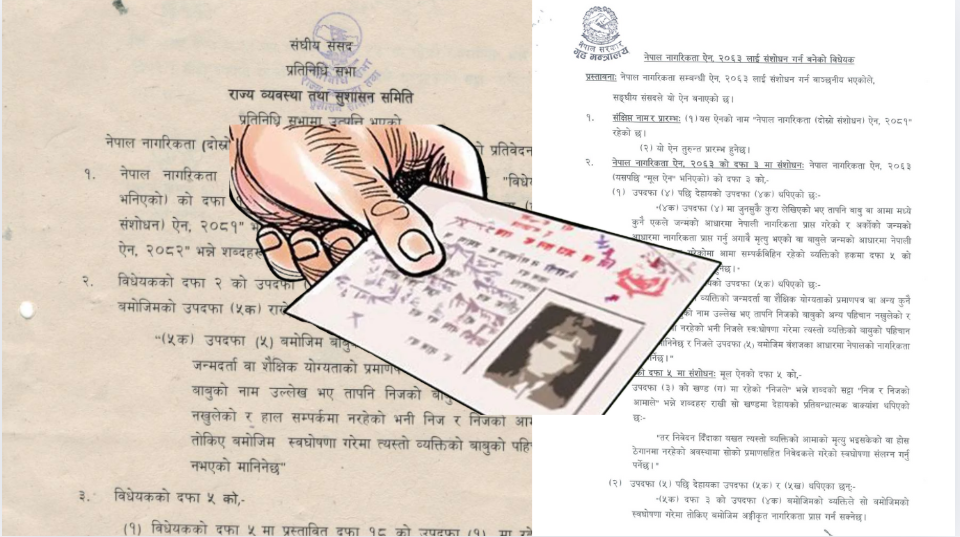 संघीय संसद
प्रतिनिधि सभा
राज्य व्यवस्था तथा सुशासन समिति
प्रतिनिधि सभामा उत्पत्ति भएको
नेपाल नागरिकता (दोस्रो
को प्रतिवेदन
१. नेपाल नागरिकता
"विधे
भनिएको) को दफा
संशोधन) ऐन, २०८१"
ऐन, २०८२" भन्ने शब्दहरू
२. विधेयकको दफा २ को उपदफा
बमोजिमको उपदफा (५क) राखे
"(५क) उपदफा (५) बमोजिम बाबु
जन्मदर्ता वा शैक्षिक योग्यताको प्रमाणप
बाबुको नाम उल्लेख भए तापनि निजको
नखुलेको र हाल सम्पर्कमा नरहेको भनी निज र निजको आम
तोकिए बमोजिम स्वघोषणा गरेमा त्यस्तो व्यक्तिको बाबुको पहि
नभएको मानिनेछ"
३. विधेयकको दफा ५ को,-
(१) विधेयकको दफा ५ मा प्रस्तावित दफा १८ को उपदफा (१) मा
नेपाल सरकार
गृह मन्त्रालय
नेपाल नागरिकता ऐन, २०६३ लाई संशोधन गर्न बनेको विधेयक
प्रस्तावना: नेपाल नागरिकता सम्बन्धी ऐन, २०६३ लाई संशोधन गर्न वाञ्छनीय भएकोले,
सङ्घीय संसदले यो ऐन बनाएको छ।
१. संक्षिप्त नाम र प्रारम्भ: (१) यस ऐनको नाम "नेपाल नागरिकता (दोस्रो संशोधन) ऐन, २०८१"
रहेको छ।
(२) यो ऐन तुरुन्त प्रारम्भ हुनेछ।
२. नेपाल नागरिकता ऐन, २०६३ को दफा ३ मा संशोधन: नेपाल नागरिकता ऐन, २०६३
(यसपछि "मूल ऐन" भनिएको) को दफा ३ को,-
(१) उपदफा (४) पछि देहायको उपदफा (४क) थपिएको छ:-
"(४क) उपदफा (४) मा जुनसुकै कुरा लेखिएको भए तापनि बाबु वा आमा मध्ये
कुनै एकले जन्मको आधारमा नेपाली नागरिकता प्राप्त गरेको र अर्कोको जन्मको
आधारमा नागरिकता प्राप्त गर्नु अगावै मृत्यु भएको वा बाबुले जन्मको आधारमा नेपाली
गरेकोमा आमा सम्पर्कविहिन रहेको व्यक्तिको हकमा दफा ५ को
हुनेछ।"
को उपदफा (५क) थपिएको छ:-
व्यक्तिको जन्मदर्ता वा शैक्षिक योग्यताको प्रमाणपत्र वा अन्य कुनै
को नाम उल्लेख भए तापनि निजको बाबुको अन्य पहिचान नखुलेको र
नरहेको भनी निजले स्वःघोषणा गरेमा त्यस्तो व्यक्तिको बाबुको पहिचान
मानिनेछ र निजले उपदफा (५) बमोजिम वंशजका आधारमा नेपालको नागरिकता
नेछ।"
को दफा ५ मा संशोधन: मूल ऐनको दफा ५ को,-
उपदफा (३) को खण्ड (ग) मा रहेको "निजले" भन्ने शब्दको सट्टा "निज र निजको
आमाले" भन्ने शब्दहरु राखी सो खण्डमा देहायको प्रतिबन्धात्मक वाक्यांश थपिएको
छ:-
"तर निवेदन दिंदाका बखत त्यस्तो व्यक्तिको आमाको मृत्यु भइसकेको वा होस
ठेगानमा नरहेको अवस्थामा सोको प्रमाणसहित निवेदकले गरेको स्वघोषणा संलग्न गर्नु
पर्नेछ।"
(२) उपदफा (५) पछि देहायका उपदफा (५क) र (५ख) थपिएका छन्:-
"(५क) दफा ३ को उपदफा (४क) बमोजिमको व्यक्तिले सो बमोजिमको
स्वघोषणा गरेमा तोकिए बमोजिम अङ्गीकृत नागरिकता प्राप्त गर्न सक्नेछ।